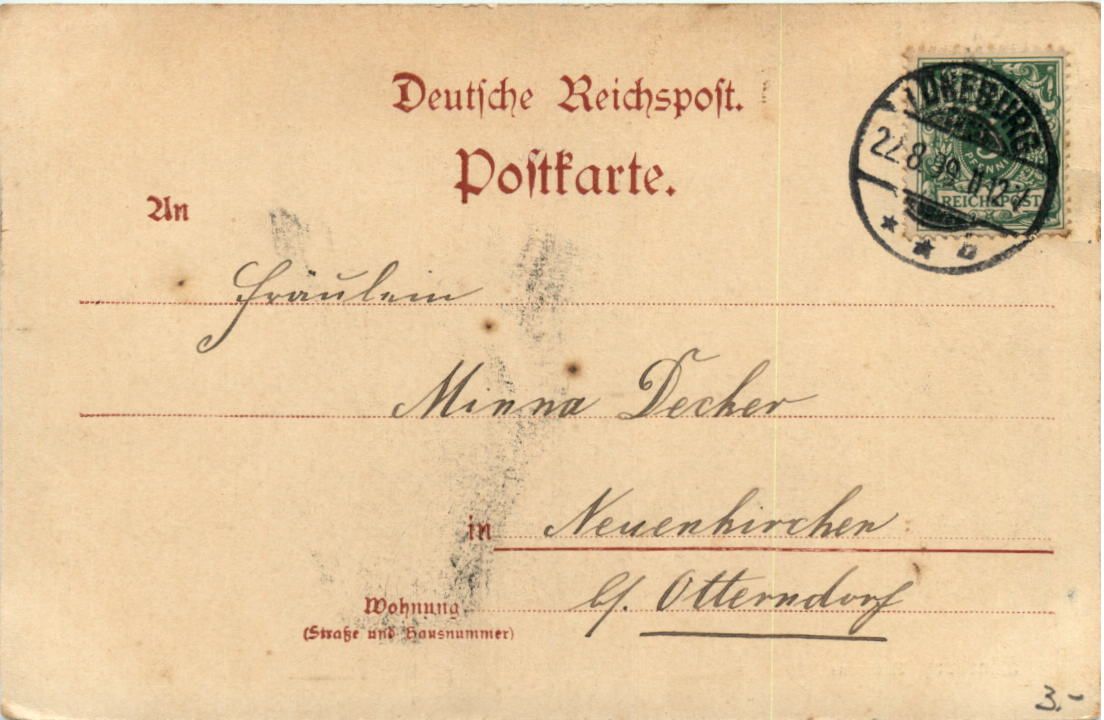 Deutsche Reichspost.
Postkarte.
LÜNEBURG
22.8.99.11-12V
* * b
5
PFENNIG
REICHSPOST
An
Fräulein
Minna Decker
in Neuenkirchen
b/. Otterndorf
Wohnung
(Straße und Hausnummer)
3.-